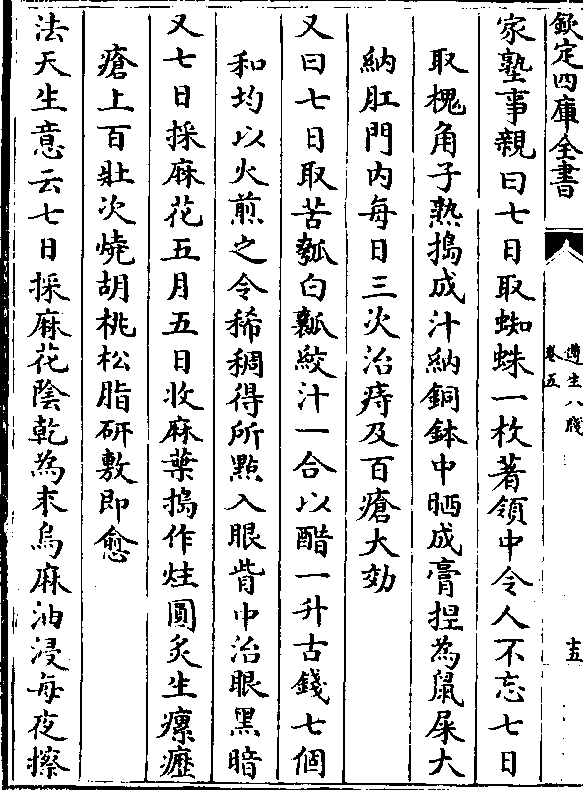 欽定四庫全書
遵生八牋
卷五
十五
家塾事親曰七日取蜘蛛一枚著領中令人不忘七日
取槐角子熟搗成汁納銅鉢中晒成膏捏為鼠屎大
納肛門內每日三次治痔及百瘡大効
又曰七日取苦瓠白瓤絞汁一合以醋一升古錢七個
和均以火煎之令稀稠得所點入眼眥中治眼黑暗
又七日採麻花五月五日收麻葉搗作炷圓炙生瘰癧
瘡上百壯次燒胡桃松脂研敷即愈
法天生意云七日採麻花陰乾為末烏麻油浸每夜擦